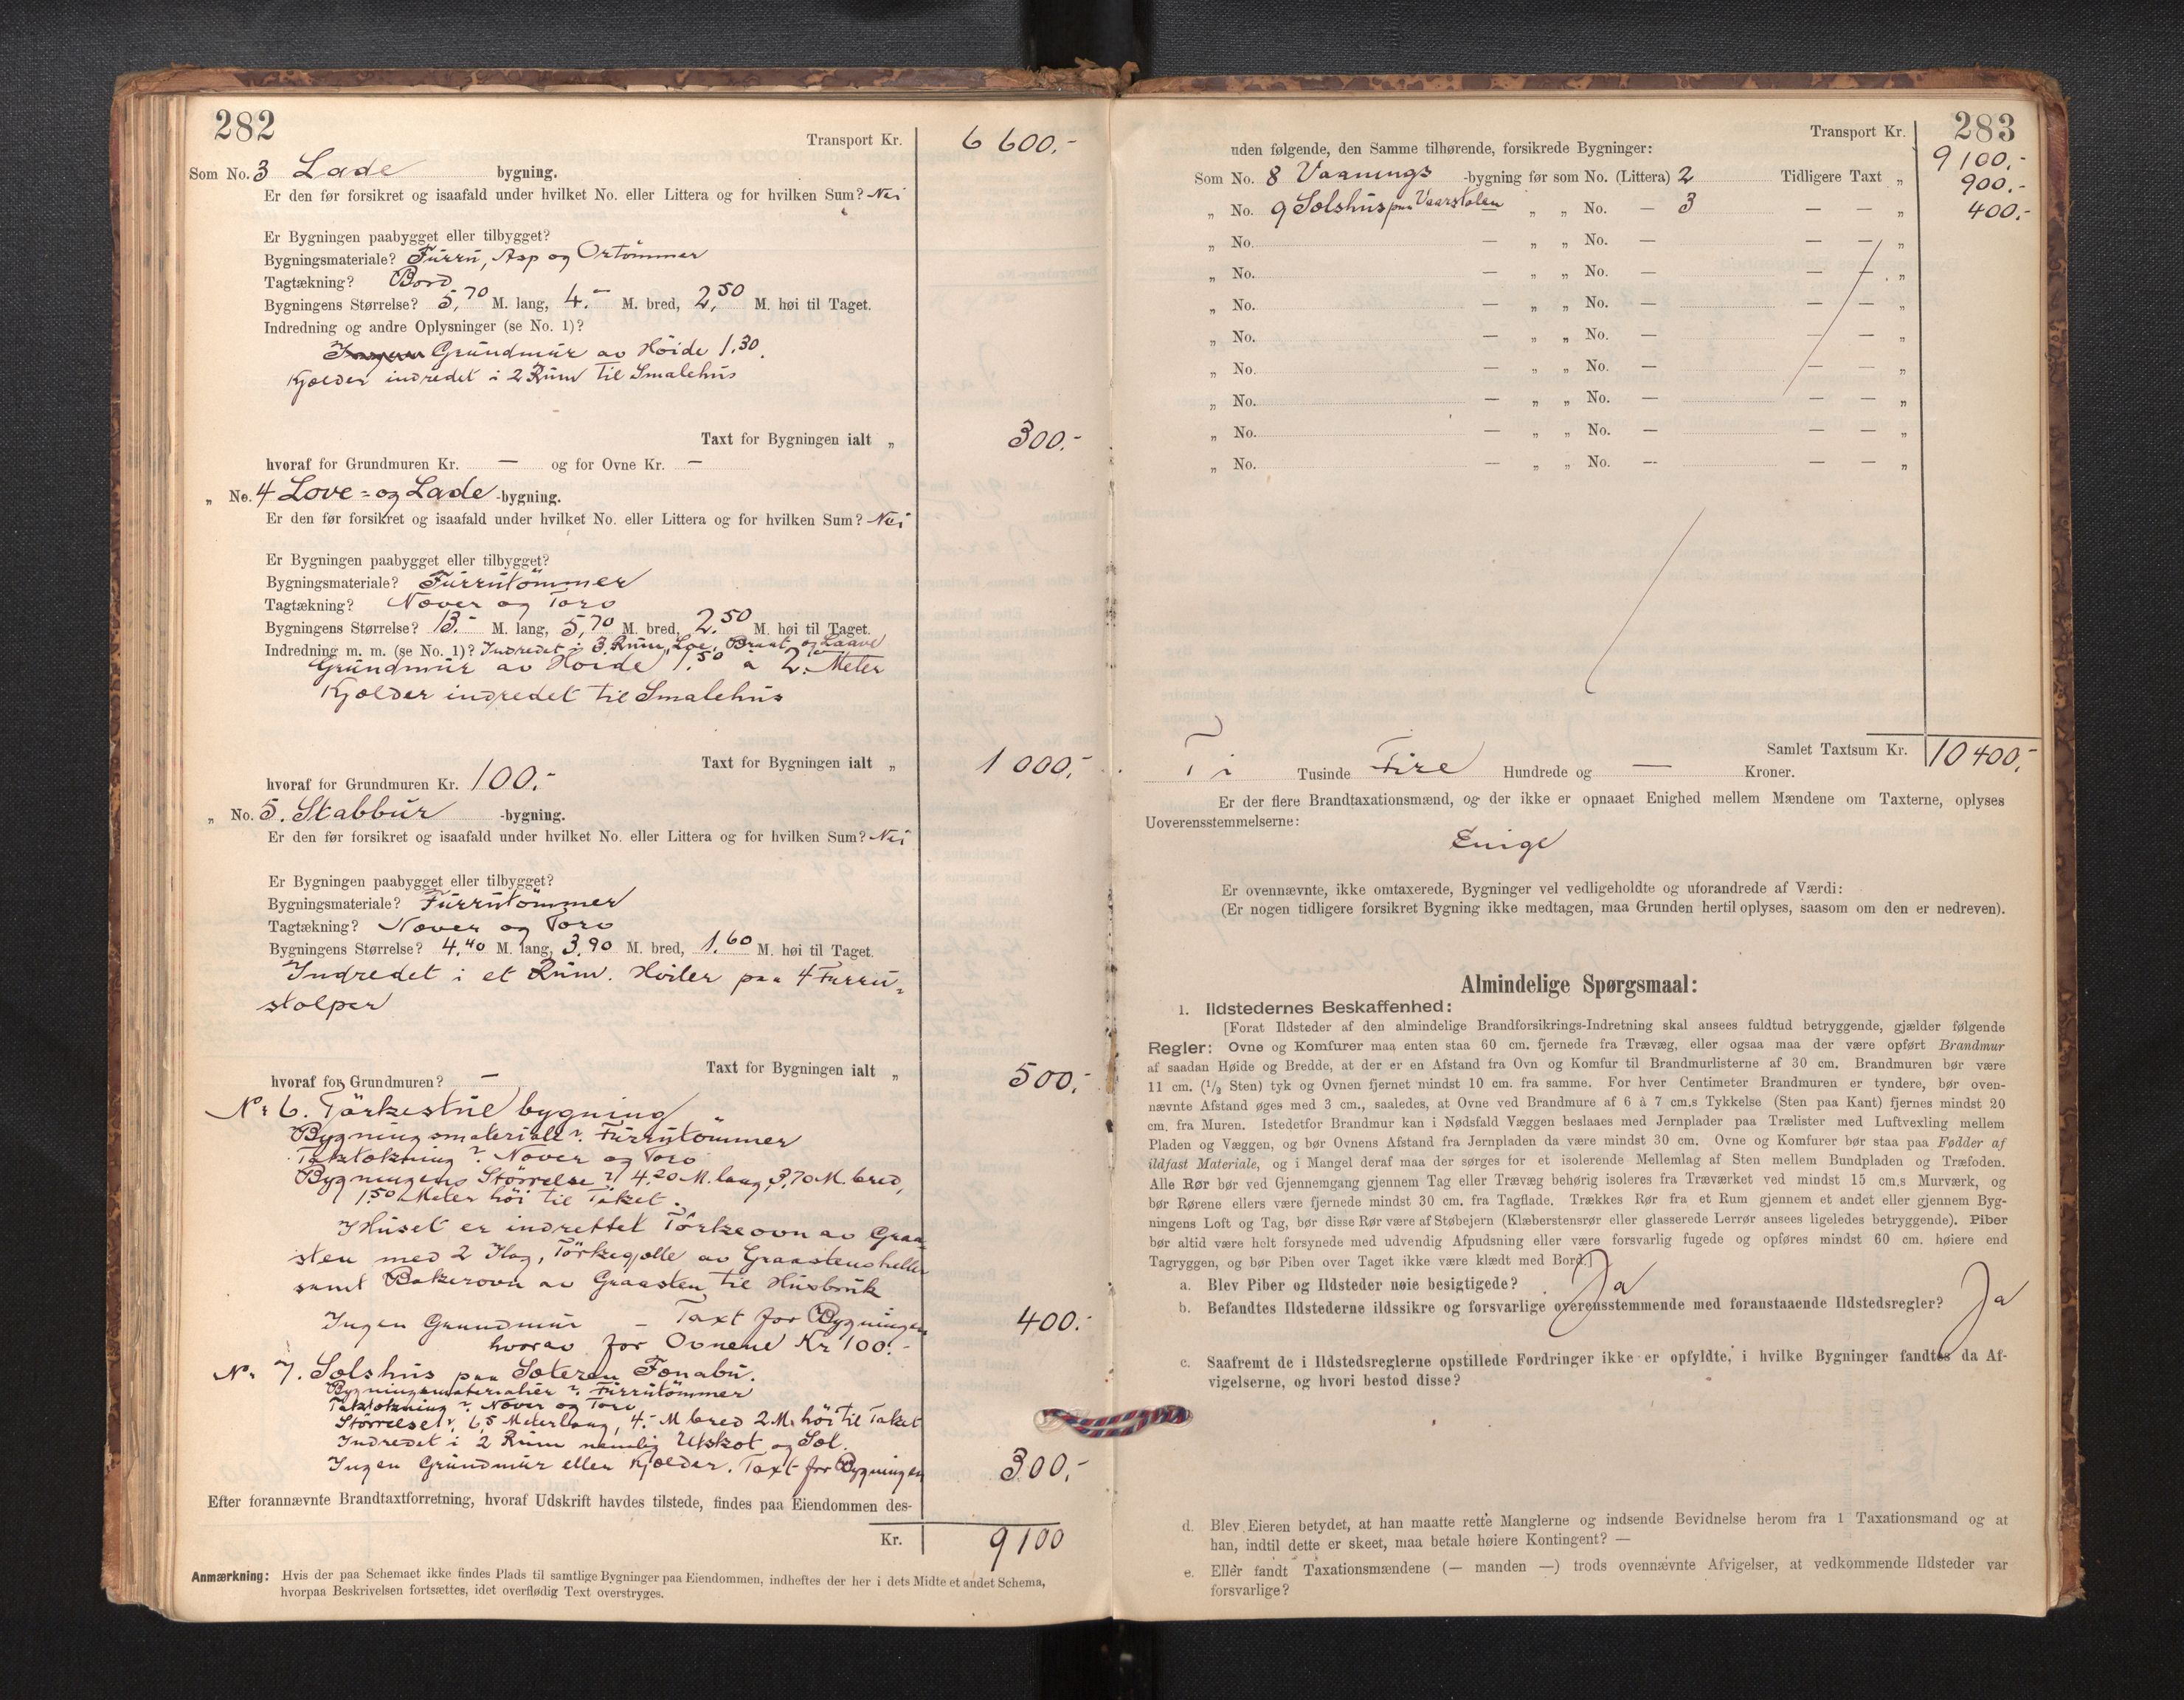 282
Transport Kr. 6 600.-
Som No. 3 Lade bygning.
Er den før forsikret og isaafald under hvilket No. eller Littera og for hvilken Sum? Nei
Er Bygningen paabygget eller tilbygget?
Bygningsmateriale? Furru, Asp og Ortømmer
Tagtækning? Bord
Bygningens Størrelse? 5,70 M. lang, 4.- M. bred, 2,50 M. høi til Taget.
Indredning og andre Oplysninger (se No. 1)?
Grundmur av Høide 1.30.
Kjælder indredet i 2 Rum til Smalehus
Taxt for Bygningen ialt „ 300.-
hvoraf for Grundmuren Kr. — og for Ovne Kr. —
„ No. 4 Love- og Lade -bygning.
Er den før forsikret og isaafald under hvilket No. eller Littera og for hvilken Sum? Nei
Er Bygningen paabygget eller tilbygget?
Bygningsmateriale? Furrutømmer
Tagtækning? Næver og Torv
Bygningens Størrelse? 13.- M. lang, 5,70 M. bred, 2.50 M. høi til Taget.
Indredning m. m. (se No. 1)? Indredet i 3 Rum, Loe, og Laave
Grundmur av Høide 1.50 a 2. Meter
Kjælder indredet til Smalehus
Taxt for Bygningen ialt „ 1 000.-
hvoraf for Grundmuren Kr. 100.-
„ No. 5. Stabbur -bygning.
Er den før forsikret og isaafald under hvilket No. eller Littera og for hvilken Sum? Nei
Er Bygningen paabygget eller tilbygget?
Bygningsmateriale? Furrutømmer
Tagtækning? Næver og Torv
Bygningens Størrelse? 4.40 M. lang, 3.90 M. bred, 1.60 M. høi til Taget.
Indredet i et Rum. Hviler paa 4 Furru-
stolper
Taxt for Bygningen ialt „ 500.-
hvoraf for Grundmuren? —
Nr 6. Tørkestue bygning
Bygningsmateriale?. Furrutømmer
Taktækning?. Næver og Torv
Bygningens Størrelse? 4.20 M. lang, 3,70 M. bred,
1,50 Meter høi til Taket.
I Huset er indrettet Tørkeovn av Graa
sten med 2 Ilag, Tørkegjølle av Graastensheller
samt Bakerovn av Graasten til Husbruk
Ingen Grundmur — Taxt for Bygningen 400.-
hvorav for Ovnene Kr 100.-
Nr 7. Selshus paa Støleren Fonabu.
Bygningsmaterialier?. Furrutømmer
Taktækning?. Næver og Torv
Størrelse?. 6,5 Meter lang, 4.- M bred 2 M. høi til Taket
Indredet i 2 Rum nemlig Utskot og Sel.
Ingen Grundmur eller Kjælder. Taxt for Bygningen 300.-
Efter forannævnte Brandtaxtforretning, hvoraf Udskrift havdes tilstede, findes paa Eiendommen des-
Kr. 9100
Anmærkning: Hvis der paa Schemaet ikke findes Plads til samtlige Bygninger paa Eiendommen, indheftes der her i dets Midte et andet Schema,
hvorpaa Beskrivelsen fortsættes, idet overflødig Text overstryges.
283
Transport Kr. 9 100.-
uden følgende, den Samme tilhørende, forsikrede Bygninger:
Som No. 8 Vaanings -bygning før som No. (Littera) 2 Tidligere Taxt „ 900.-
„ No. 9 Selshus paa Vaarstølen „ „ No. — 3 — — „ 400.-
„ No. — „ „ No. — — — „
„ No. — „ „ No. — — — „
„ No. — „ „ No. — — — „
„ No. — „ „ No. — — — „
„ No. — „ „ No. — — — „
„ No. — „ „ No. — — — „
„ No. — „ „ No. — — — „
„ No. — „ „ No. — — — „
Samlet Taxtsum Kr. 10 400.-
Ti Tusinde Fire Hundrede og — Kroner.
Er der flere Brandtaxationsmænd, og der ikke er opnaaet Enighed mellem Mændene om Taxterne, oplyses
Uoverensstemmelserne:
Enige
Er ovennævnte, ikke omtaxerede, Bygninger vel vedligeholdte og uforandrede af Værdi:
(Er nogen tidligere forsikret Bygning ikke medtagen, maa Grunden hertil oplyses, saasom om den er nedreven).
Almindelige Spørgsmaal:
1. Ildstedernes Beskaffenhed:
[Forat Ildsteder af den almindelige Brandforsikrings-Indretning skal ansees fuldtud betryggende, gjælder følgende
Regler: Ovne og Komfurer maa enten staa 60 cm. fjernede fra Trævæg, eller ogsaa maa der være opført Brandmur
af saadan Høide og Bredde, at der er en Afstand fra Ovn og Komfur til Brandmurlisterne af 30 cm. Brandmuren bør være
11 cm. (1/2 Sten) tyk og Ovnen fjernet mindst 10 cm. fra samme. For hver Centimeter Brandmuren er tyndere, bør oven-
nævnte Afstand øges med 3 cm., saaledes, at Ovne ved Brandmure af 6 à 7 cm.s Tykkelse (Sten paa Kant) fjernes mindst 20
cm. fra Muren. Istedetfor Brandmur kan i Nødsfald Væggen beslaaes med Jernplader paa Trælister med Luftvexling mellem
Pladen og Væggen, og bør Ovnens Afstand fra Jernpladen da være mindst 30 cm. Ovne og Komfurer bør staa paa Fødder af
ildfast Materiale, og i Mangel deraf maa der sørges for et isolerende Mellemlag af Sten mellem Bundpladen og Træfoden.
Alle Rør bør ved Gjennemgang gjennem Tag eller Trævæg behørig isoleres fra Træværket ved mindst 15 cm.s Murværk, og
bør Rørene ellers være fjernede mindst 30 cm. fra Tagflade. Trækkes Rør fra et Rum gjennem et andet eller gjennem Byg-
ningens Loft og Tag, bør disse Rør være af Støbejern (Klæberstensrør eller glasserede Lerrør ansees ligeledes betryggende). Piber
bør altid være helt forsynede med udvendig Afpudsning eller være forsvarlig fugede og opføres mindst 60 cm. høiere end
Tagryggen, og bør Piben over Taget ikke være klædt med Bord.]
a. Blev Piber og Ildsteder nøie besigtigede? Ja
b. Befandtes Ildstederne ildssikre og forsvarlige overensstemmende med foranstaaende Ildstedsregler? Ja
c. Saafremt de i Ildstedsreglerne opstillede Fordringer ikke er opfyldte, i hvilke Bygninger fandtes da Af-
vigelserne, og hvori bestod disse?
d. Blev Eieren betydet, at han maatte rette Manglerne og indsende Bevidnelse herom fra 1 Taxationsmand og at
han, indtil dette er skeet, maa betale høiere Kontingent? —
e. Eller fandt Taxationsmændene (— manden —) trods ovennævnte Afvigelser, at vedkommende Ildsteder var
forsvarlige?